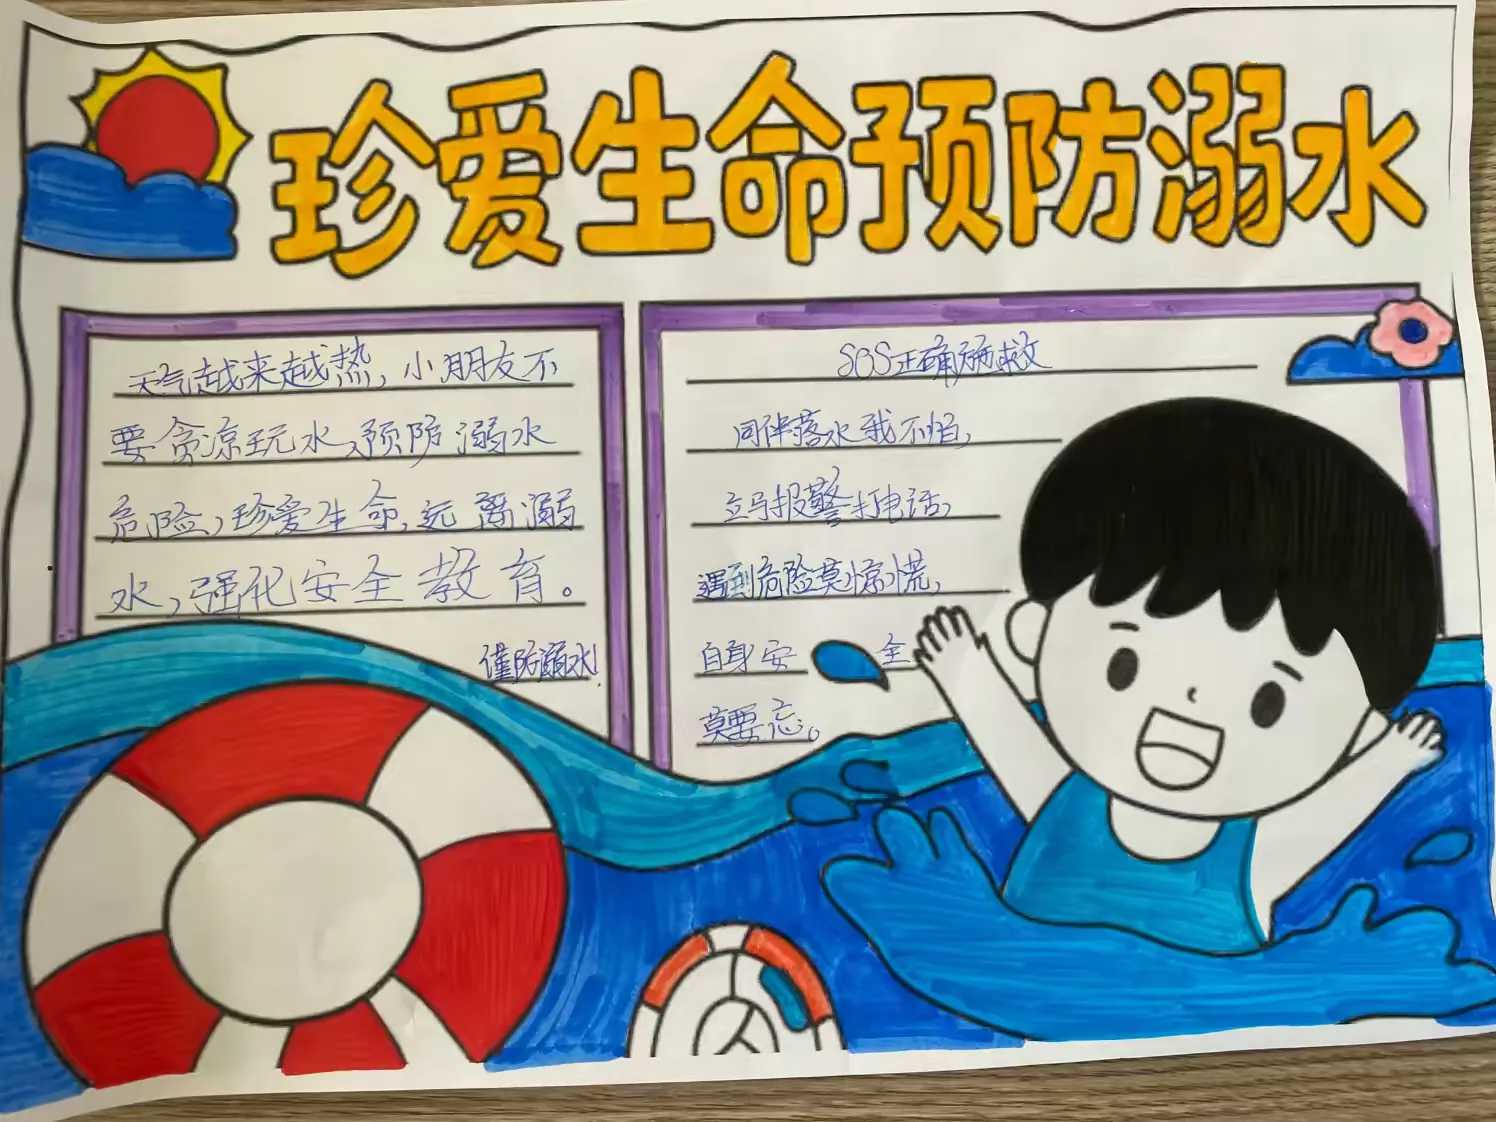 珍爱生命预防溺水
天气越来越热,小朋友不
要贪凉玩水,预防溺水
危险,珍爱生命,远离溺
水,强化安全教育。
谨防溺水!
SOS正确施救
同伴落水我不怕,
立马报警打电话,
遇到危险莫惊慌,
自身安全
莫要忘。